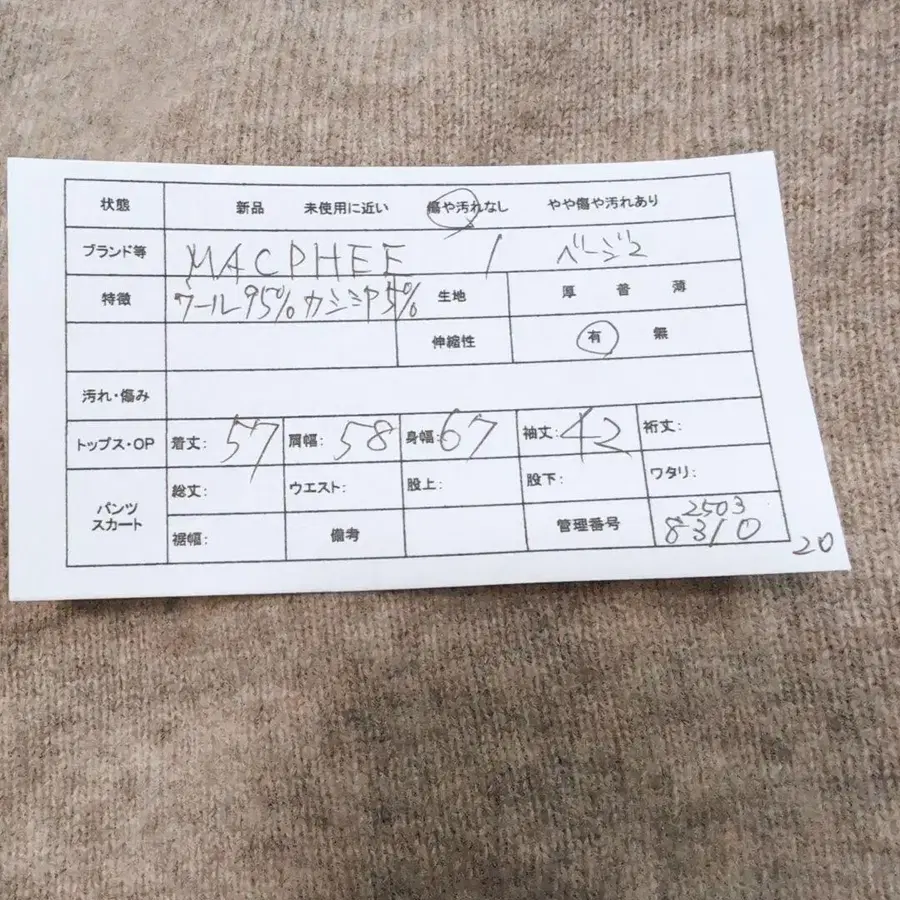 状態 新品 未使用に近い 傷や汚れなし やや傷や汚れあり
ブランド等 MACPHEE / ベージュ
特徴 ウール95% カシミヤ5% 生地 厚 普 薄
伸縮性 有 無
汚れ・傷み
トップス・OP 着丈: 57 肩幅: 58 身幅: 67 袖丈: 42 裄丈:
パンツ スカート 総丈: ウエスト: 股上: 股下: ワタリ:
裾幅: 備考 管理番号 2503
8310
20